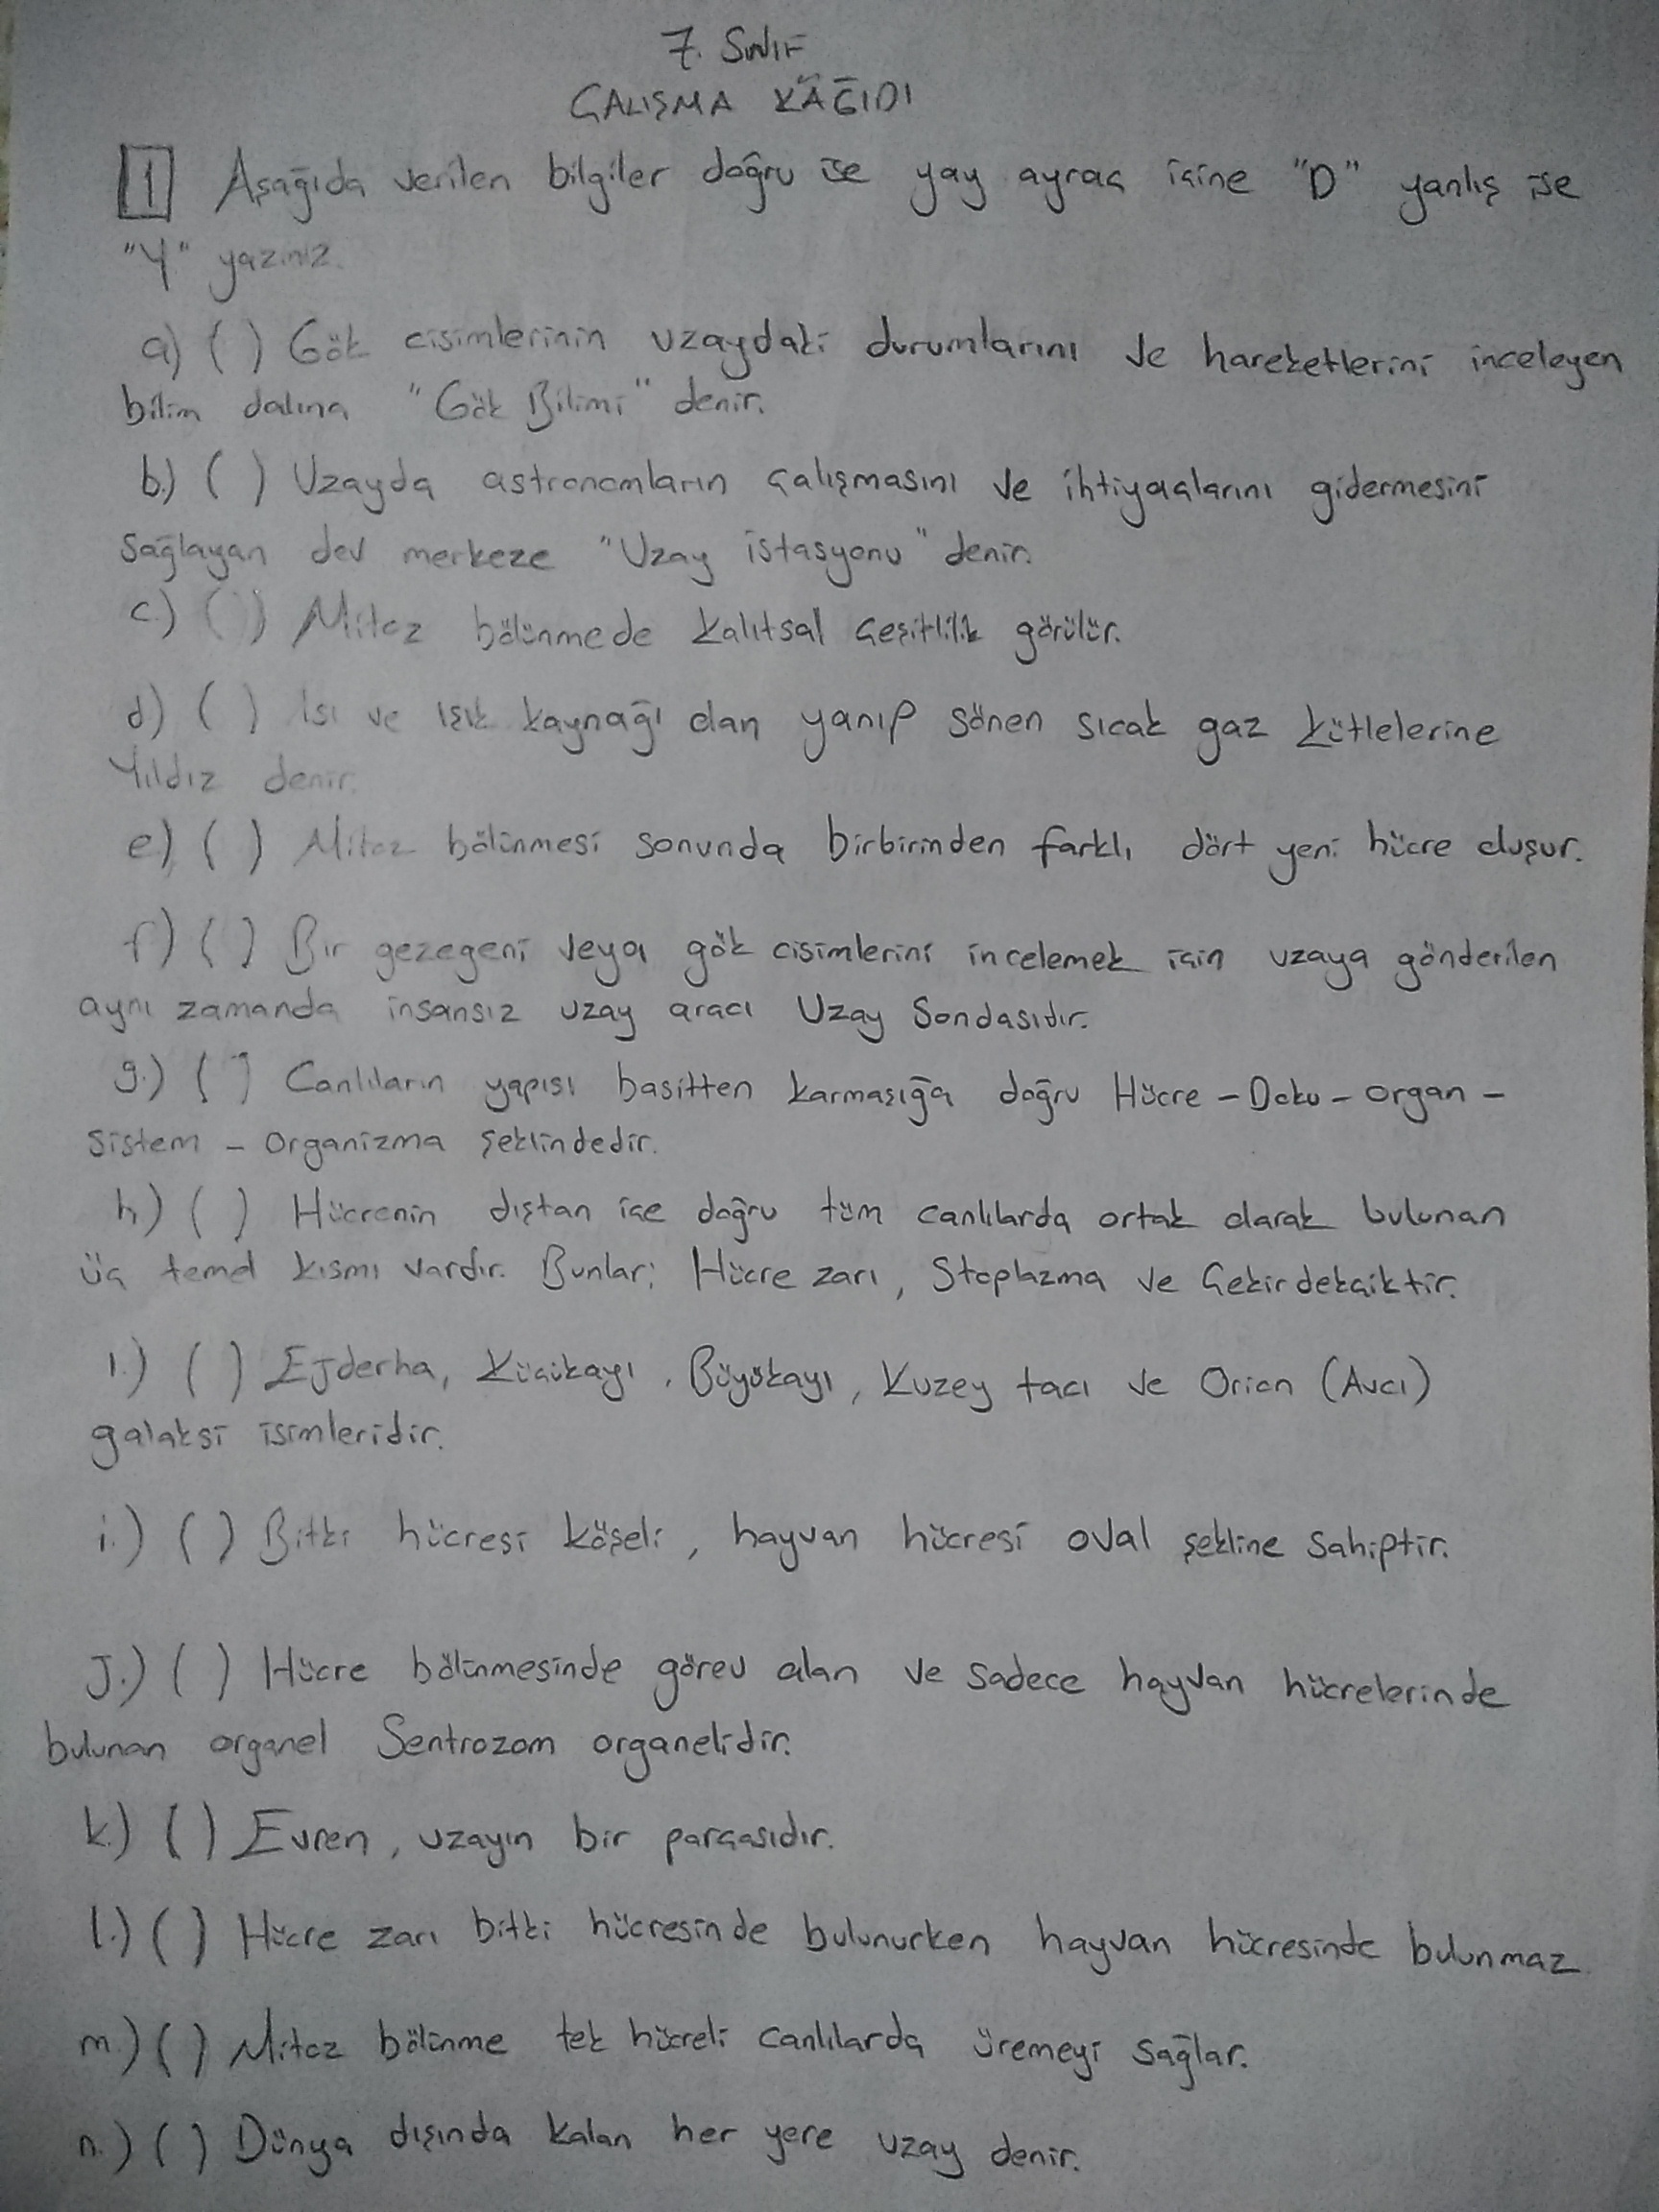 7. SINIF
ÇALIŞMA KÂĞIDI
1 Aşağıda verilen bilgiler doğru ise yay ayraç içine "D" yanlış ise
"Y" yazınız.
a) ( ) Gök cisimlerinin uzaydaki durumlarını ve hareketlerini inceleyen
bilim dalına "Gök Bilimi" denir.
b.) ( ) Uzayda astronomların çalışmasını ve ihtiyaçlarını gidermesini
sağlayan dev merkeze "Uzay istasyonu" denir.
c.) ( ) Mitoz bölünmede kalıtsal çeşitlilik görülür.
d) ( ) Isı ve ışık kaynağı olan yanıp sönen sıcak gaz kütlelerine
Yıldız denir.
e) ( ) Mitoz bölünmesi sonunda birbirinden farklı dört yeni hücre oluşur.
f) ( ) Bir gezegeni veya gök cisimlerini incelemek için uzaya gönderilen
aynı zamanda insansız uzay aracı Uzay Sondasıdır.
g.) ( ) Canlıların yapısı basitten karmaşığa doğru Hücre - Doku - organ -
sistem - organizma şeklindedir.
h) ( ) Hücrenin dıştan içe doğru tüm canlılarda ortak olarak bulunan
üç temel kısmı vardır. Bunlar; Hücre zarı, Stoplazma ve Çekirdekçiktir.
ı.) ( ) Ejderha, Küçükayı, Büyükayı, Kuzey tacı ve Orion (Avcı)
galaksi isimleridir.
i.) ( ) Bitki hücresi köşeli, hayvan hücresi oval şekline sahiptir.
J.) ( ) Hücre bölünmesinde görev alan ve sadece hayvan hücrelerinde
bulunan organel Sentrozom organelidir.
k.) ( ) Evren, uzayın bir parçasıdır.
l.) ( ) Hücre zarı bitki hücresinde bulunurken hayvan hücresinde bulunmaz
m.) ( ) Mitoz bölünme tek hücreli canlılarda üremeyi sağlar.
n.) ( ) Dünya dışında kalan her yere uzay denir.